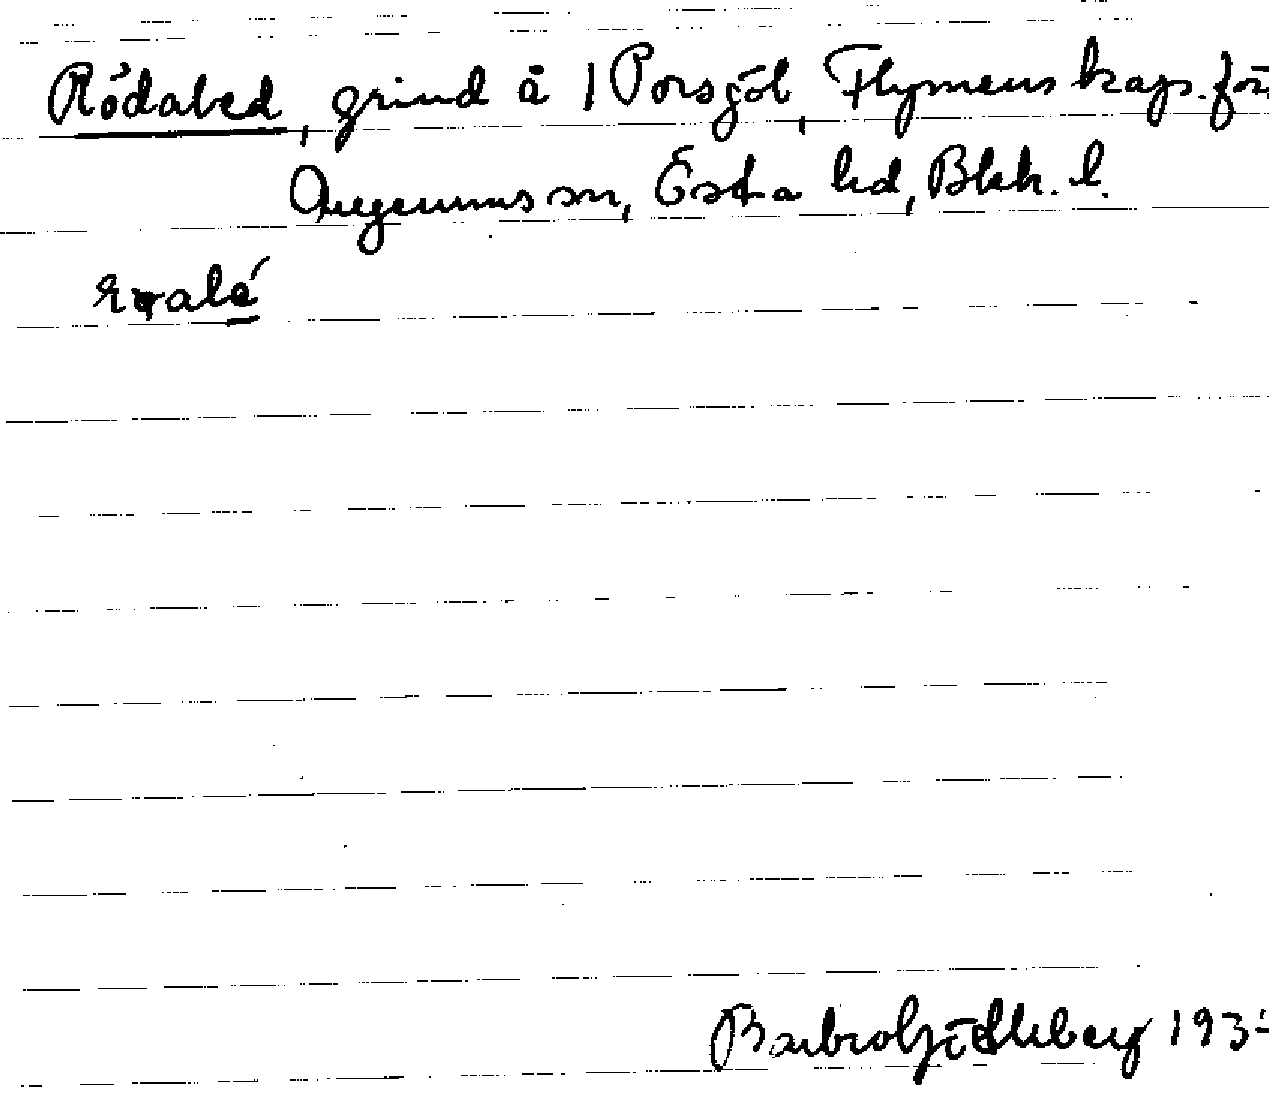 Rödaled, grind å 1 Porsgöl, Flymens kap. för
Augerums sn, Östra hd, Blek. l.
Barbro 193